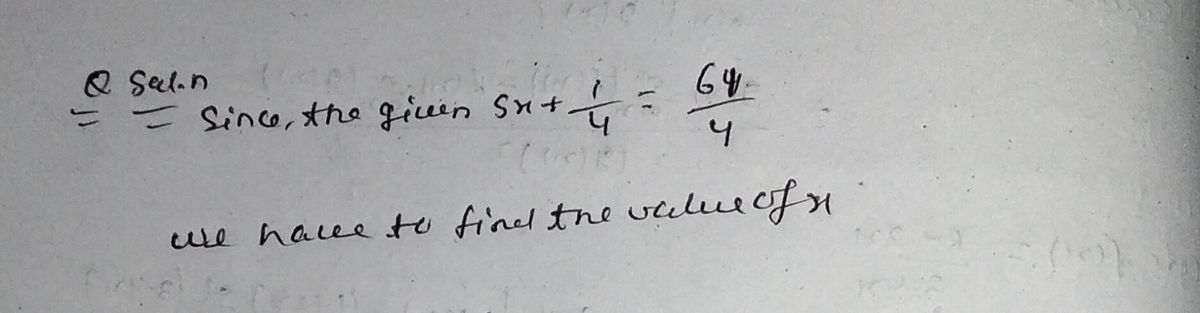 Q Sol.n
Since, the given 5x + 1/4 = 64/4
we have to find the value of x